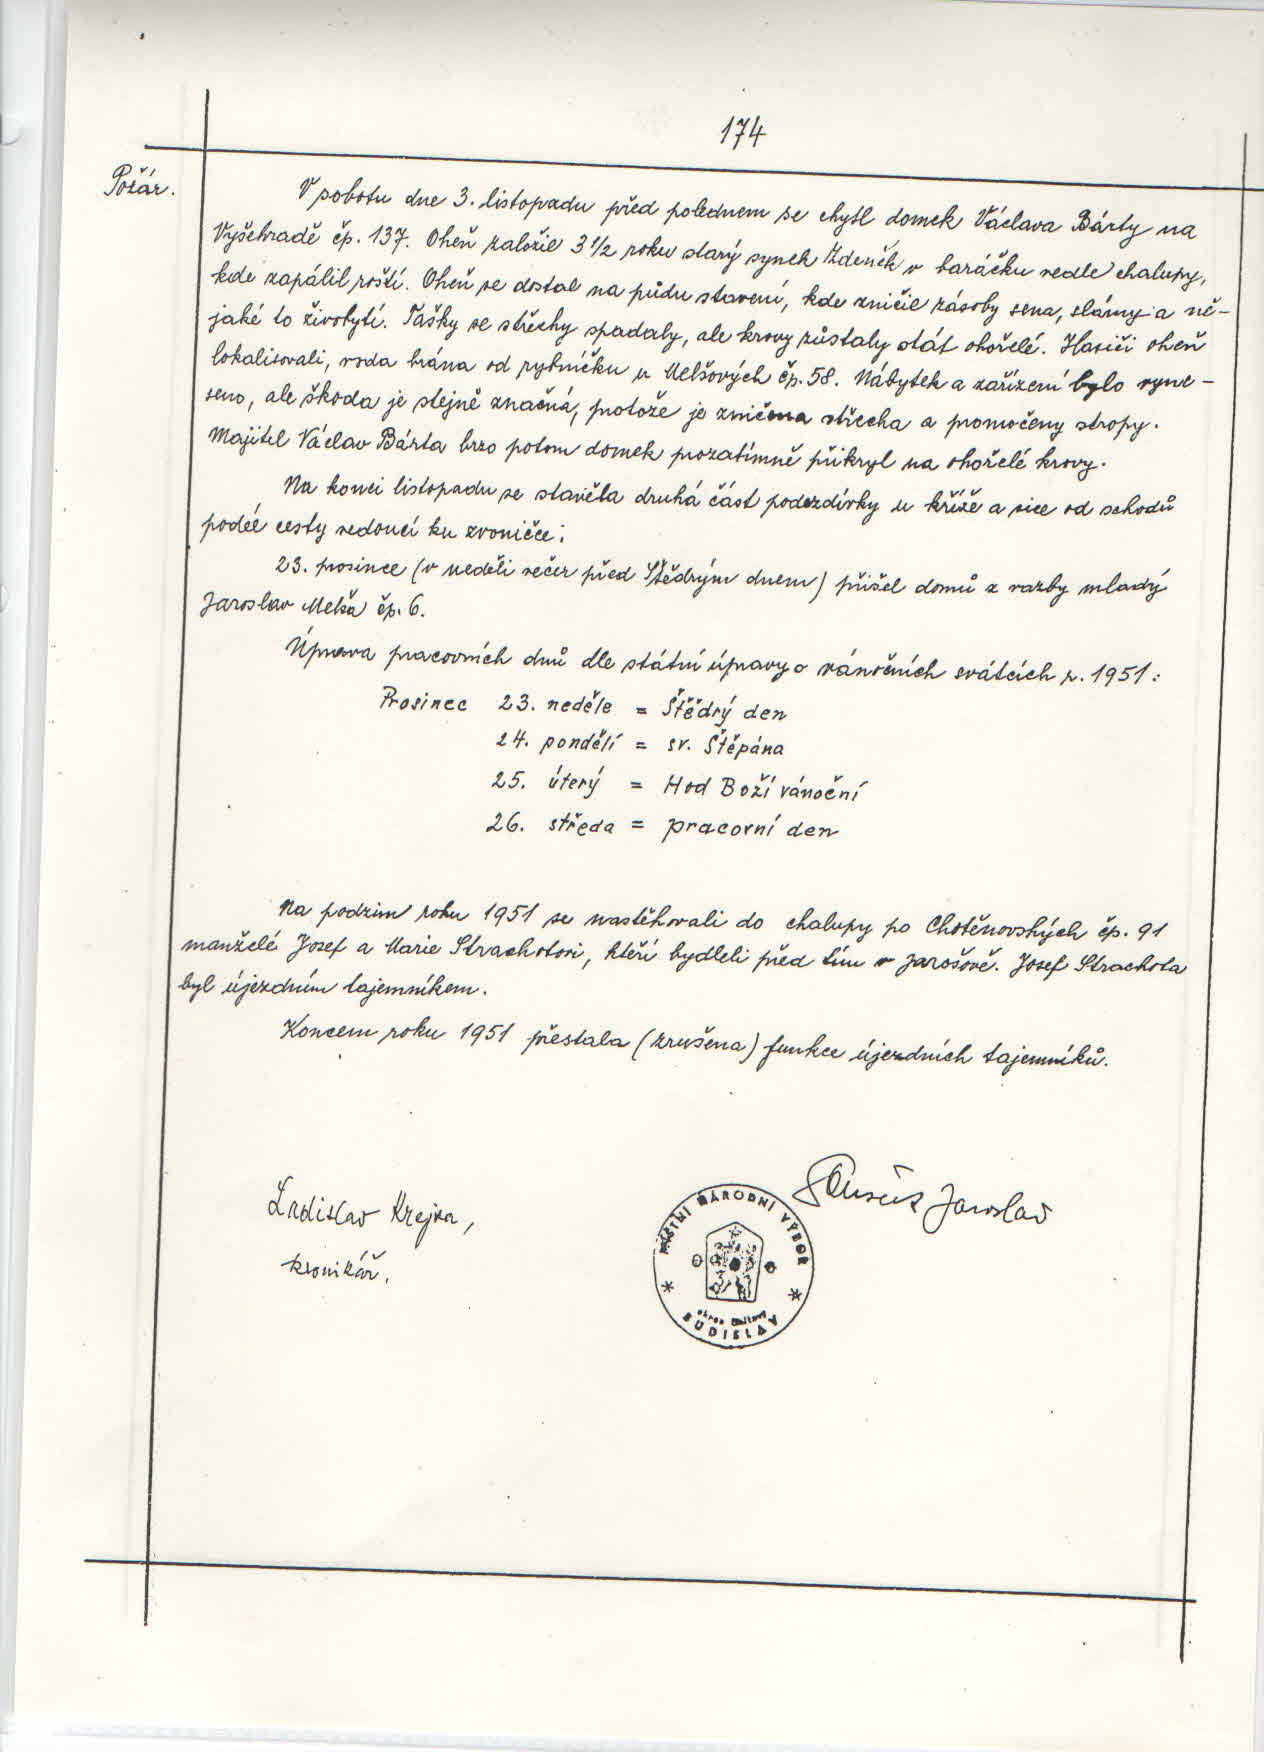 174
Požár.
V sobotu dne 3. listopadu před polednem se chytl domek Václava Bárty na
Vyšehradě čp. 137. Oheň založil 3 1/2 roku starý synek Zdeněk v baráčku vedle chalupy,
kde zapálil roští. Oheň se dostal na půdu stavení, kde zničil zásoby sena, slámy a ně-
jaké to živobytí. Tašky se střechy spadaly, ale krovy zůstaly stát ohořelé. Hasiči oheň
lokalisovali, voda brána od rybníčku u Melšových čp. 58. Nábytek a zařízení bylo vyne-
seno, ale škoda je stejně značná, protože je zničena střecha a promočeny stropy.
Majitel Václav Bárta brzo potom domek prozatímně přikryl na ohořelé krovy.
Na konci listopadu se stavěla druhá část podezdívky u kříže a sice od schodů
podél cesty vedoucí ku zvoničce;
23. prosince (v neděli večer před Štědrým dnem) přišel domů z vazby mladý
Jaroslav Melša čp. 6.
Úprava pracovních dnů dle státní úpravy o vánočních svátcích r. 1951:
Prosinec 23. neděle = Štědrý den
24. pondělí = sv. Štěpána
25. úterý = Hod Boží vánoční
26. středa = pracovní den
Na podzim roku 1951 se nastěhovali do chalupy po Chotěnovských čp. 91
manželé Josef a Marie Strachotovi, kteří bydleli před tím v Jarošově. Josef Strachota
byl újezdním tajemníkem.
Koncem roku 1951 přestala (zrušena) funkce újezdních tajemníků.
Ladislav Krejsa,
kronikář.
Jaroslav
MÍSTNÍ NÁRODNÍ VÝBOR
BUDISLAV